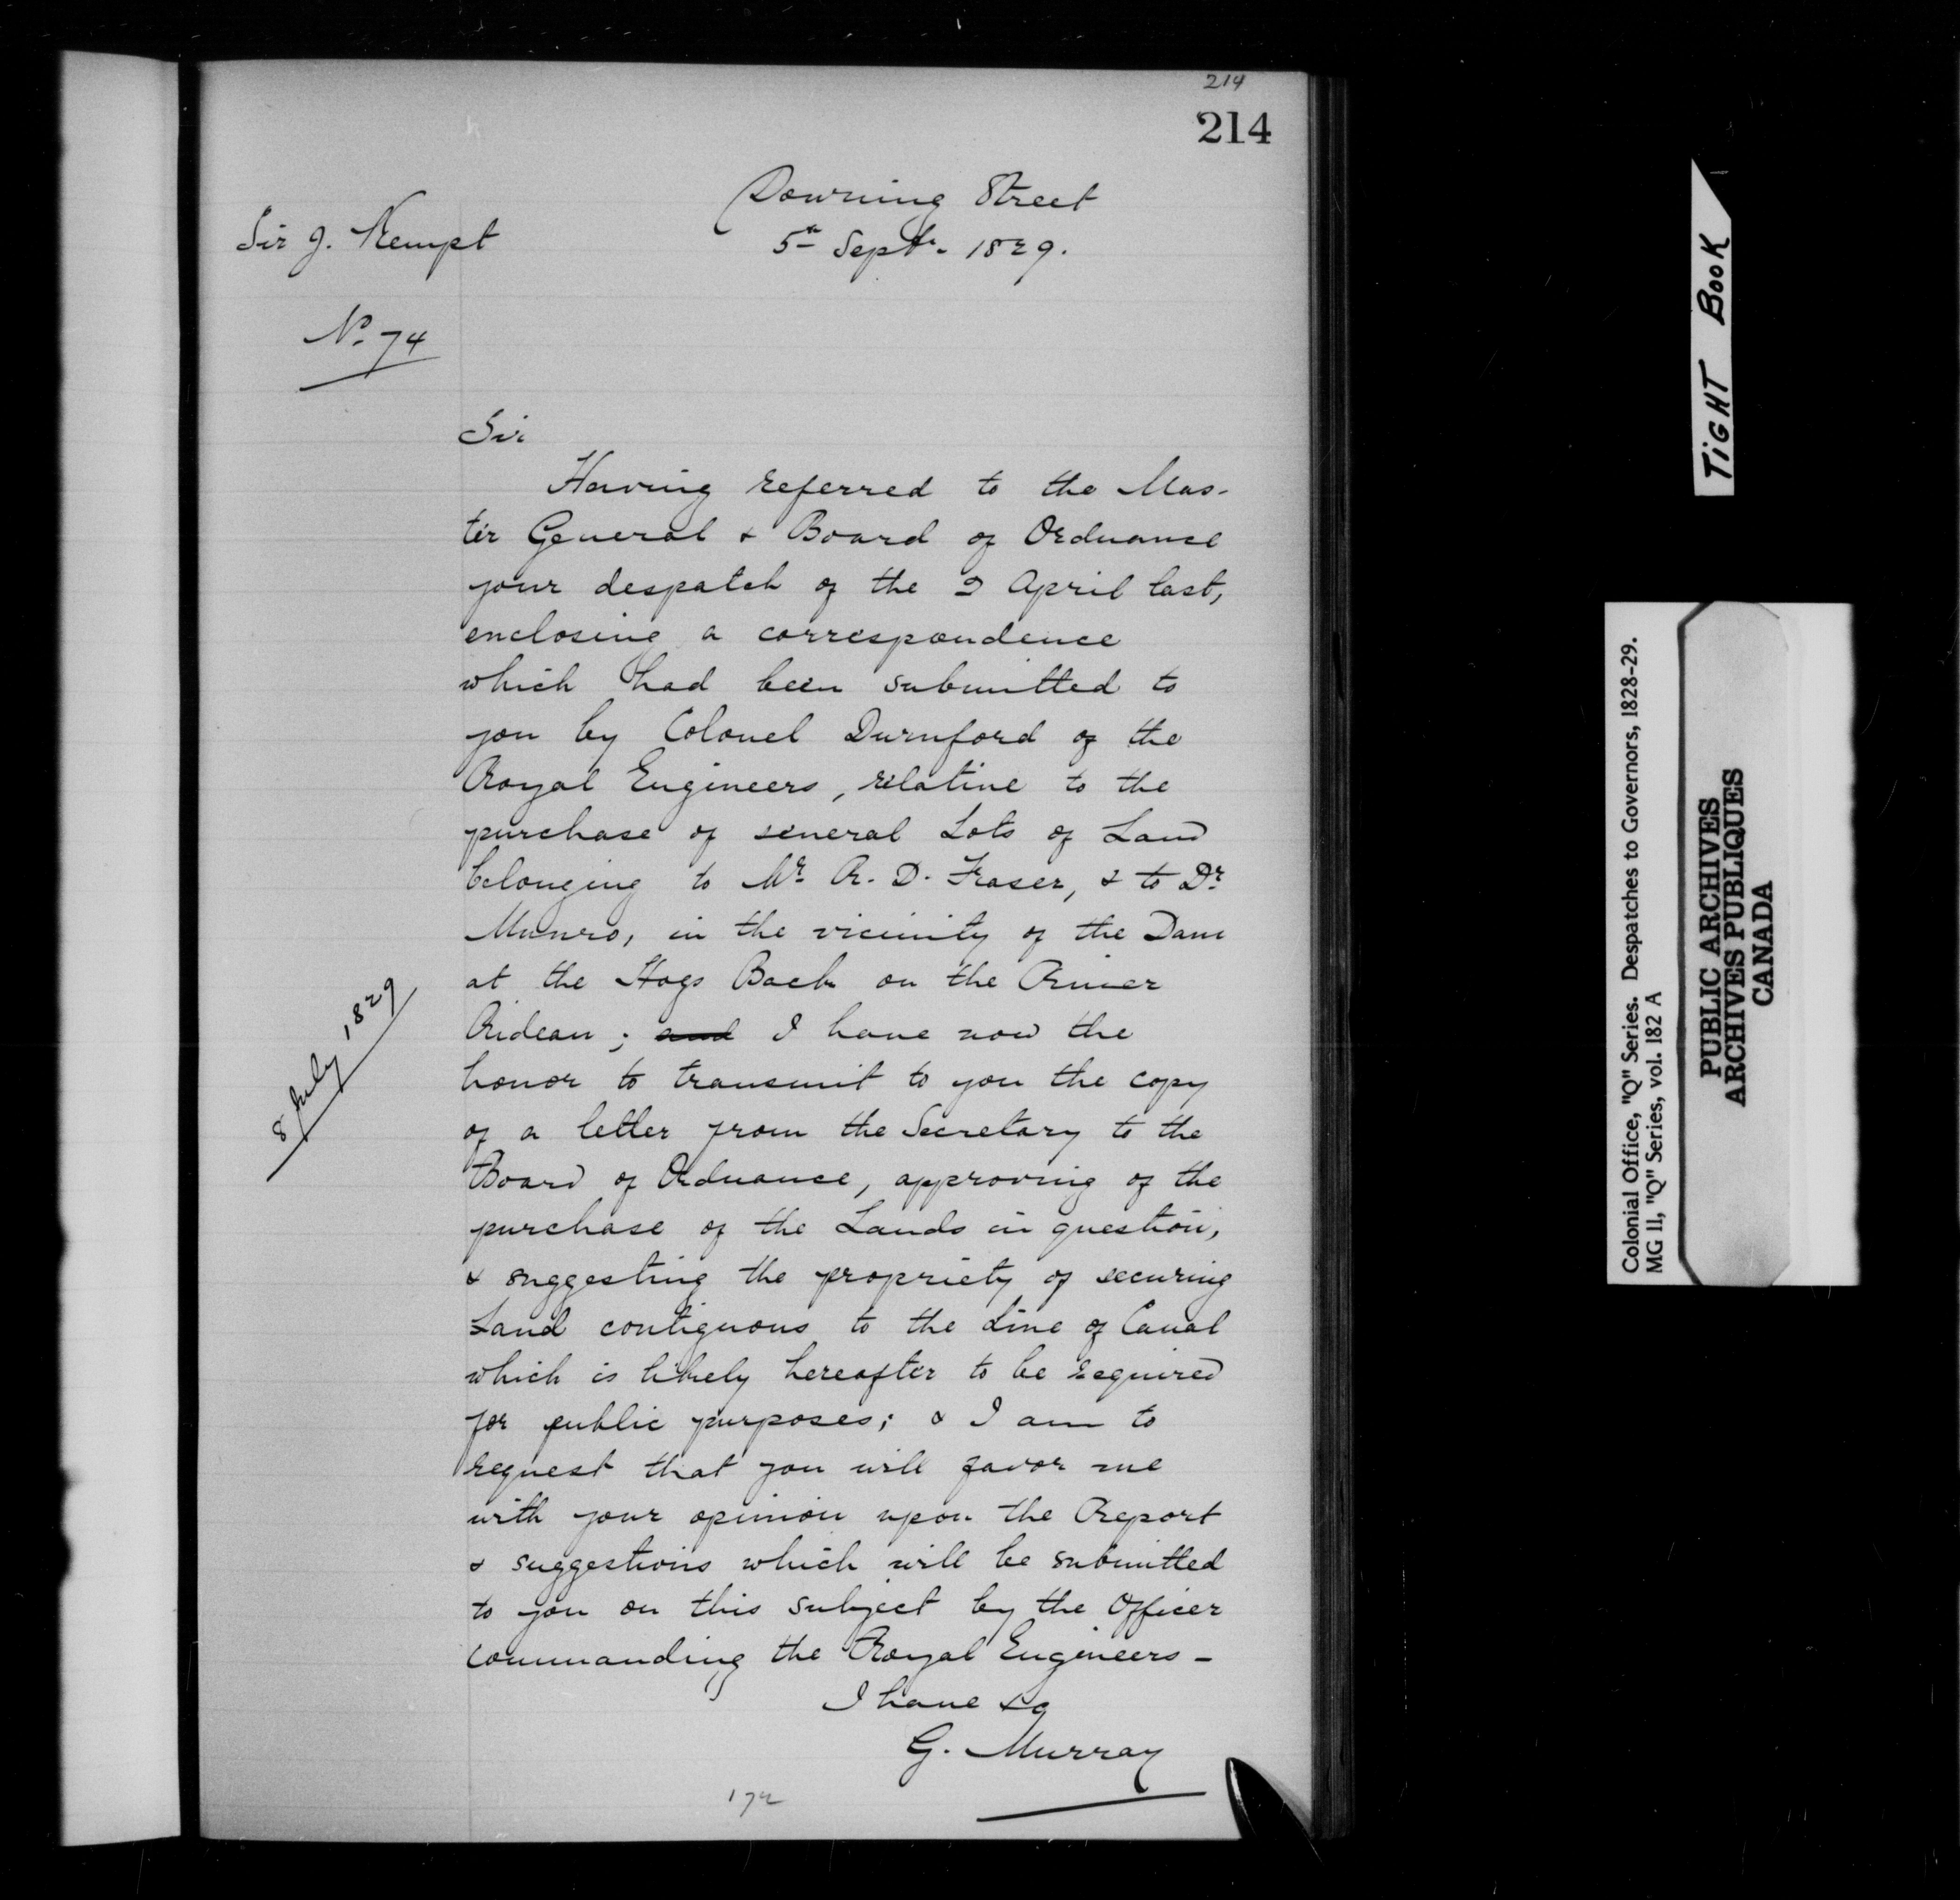 214
214
Downing Street
Sir J. Kempt
5th Septr. 1829.
No. 74
Sir
Having referred to the Mas-
ter General & Board of Ordnance
your despatch of the 2 April last,
enclosing a correspondence
which had been submitted to
you by Colonel Durnford of the
Royal Engineers, relative to the
purchase of several Lots of Land
belonging to Mr. R. D. Fraser, & to Dr.
Munro, in the vicinity of the Dam
at the Hogs Back on the River
Rideau; and I have now the
honor to transmit to you the copy
8 July 1829
of a letter from the Secretary to the
Board of Ordnance, approving of the
purchase of the Lands in question,
& suggesting the propriety of securing
Land contiguous to the Line of Canal
which is likely hereafter to be required
for public purposes; & I am to
request that you will favor me
with your opinion upon the Report
& suggestions which will be submitted
to you on this subject by the Officer
commanding the Royal Engineers -
I have &c
G. Murray
172
TIGHT BOOK
Colonial Office, "Q" Series. Despatches to Governors, 1828-29.
MG 11, "Q" Series, vol. 182 A
PUBLIC ARCHIVES
ARCHIVES PUBLIQUES
CANADA